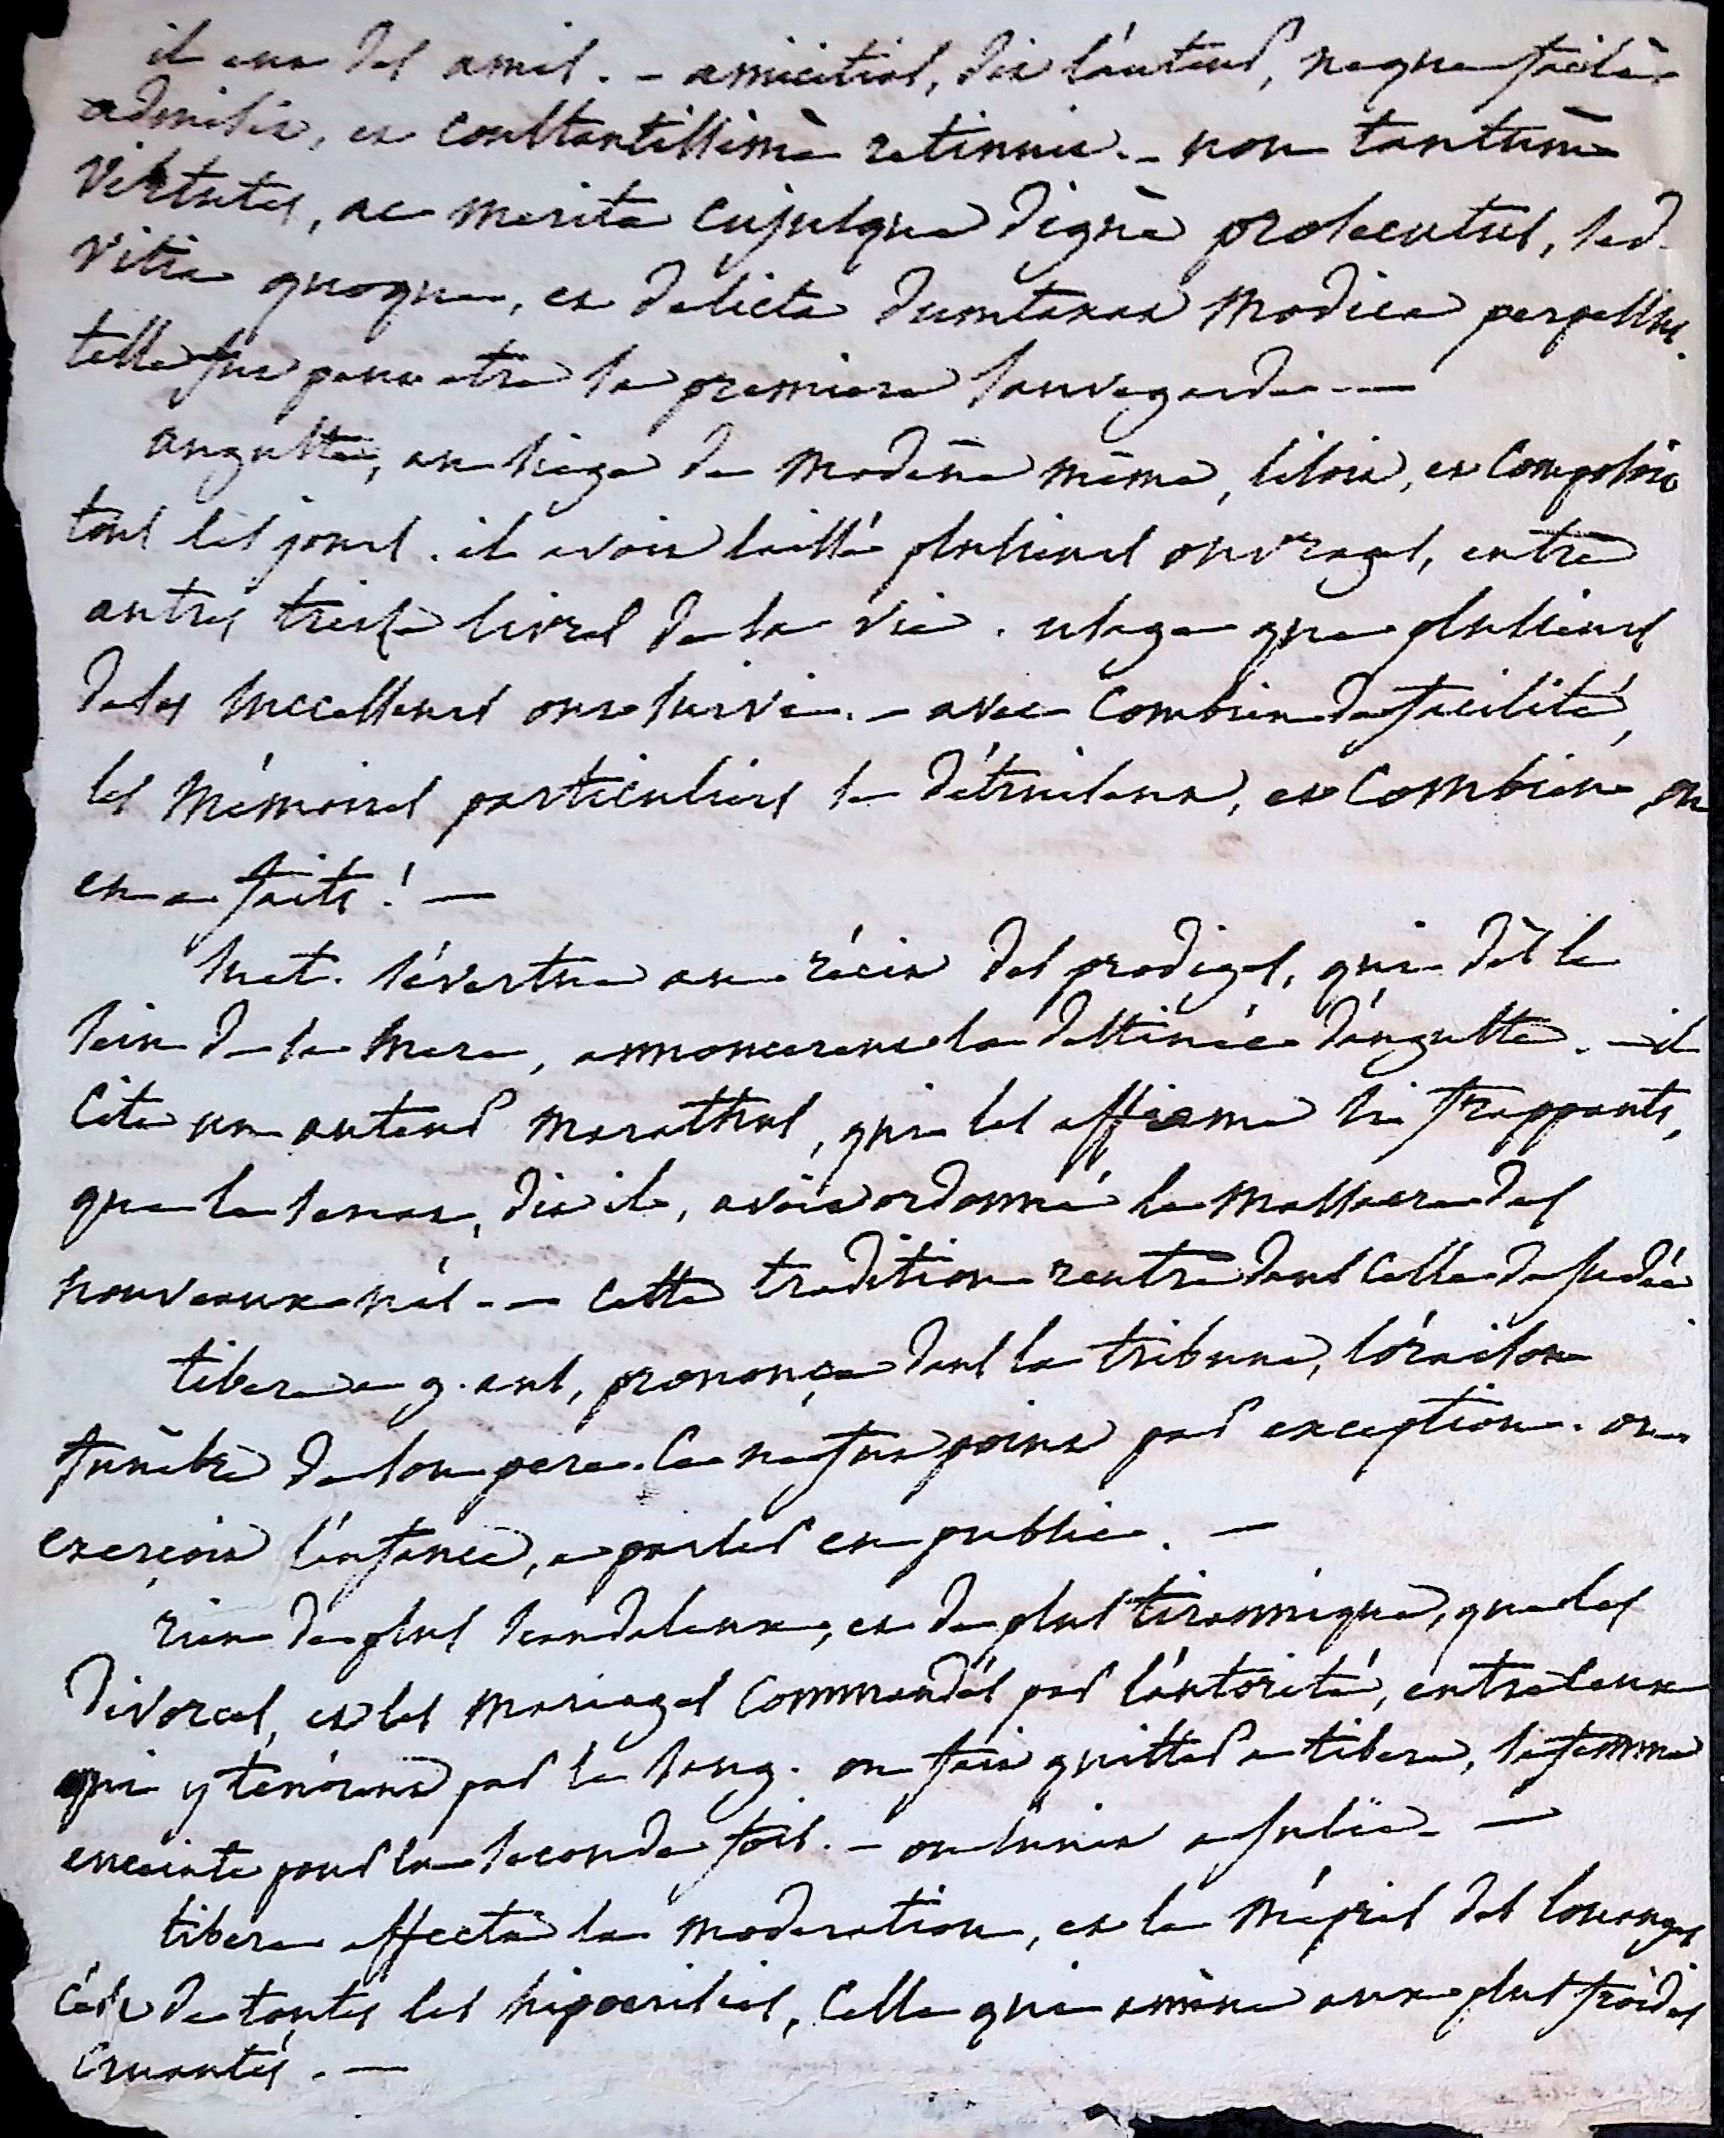 il eut des amis. - amicitias, dit l'auteur, neque facilè
admisit, et constantissimè retinuit. - non tantùm
virtutes, ac merita cujusque dignè prosecutus, sed
vitia quoque, et delicta dumtaxat modica perpessus.
telle fut peut etre sa premiere sauvegarde. —
auguste, au siege de modène même, lisoit, et composoit
tous les jours. il avoit laissé plusieurs ouvrages, entre
autres treize livres de sa vie. usage que plusieurs
de ses successeurs ont suivi. - avec combien de facilité,
les mémoires particuliers se détruisent, et combien on
en a faits! —
suet. s'évertue au récit des prodiges, qui dès le
sein de sa mere, annoncerent la destinée d'auguste. - il
cite un auteur marathus, qui les affirme si frappants,
que le senat, dit il, avoit ordonné le massacre des
nouveaux nés. - cette tradition rentre dans celle de judée
tibere a 9. ans, prononça dans la tribune, l'oraison
funèbre de son pere. ce ne fut point par exception. on
exerçoit l'enfance, a parler en public. —
rien de plus scandaleux, et de plus tirannique, que les
divorces, et les mariages commandés par l'autorité, entre ceux
qui y tenoient par le sang. on fait quitter a tibere, sa femme
enceinte pour la seconde fois. - on l'unit a julie. —
tibere affecta la moderation, et le mépris des louanges
c'est de toutes les hipocrisies, celle qui amène aux plus froides
cruautés. —